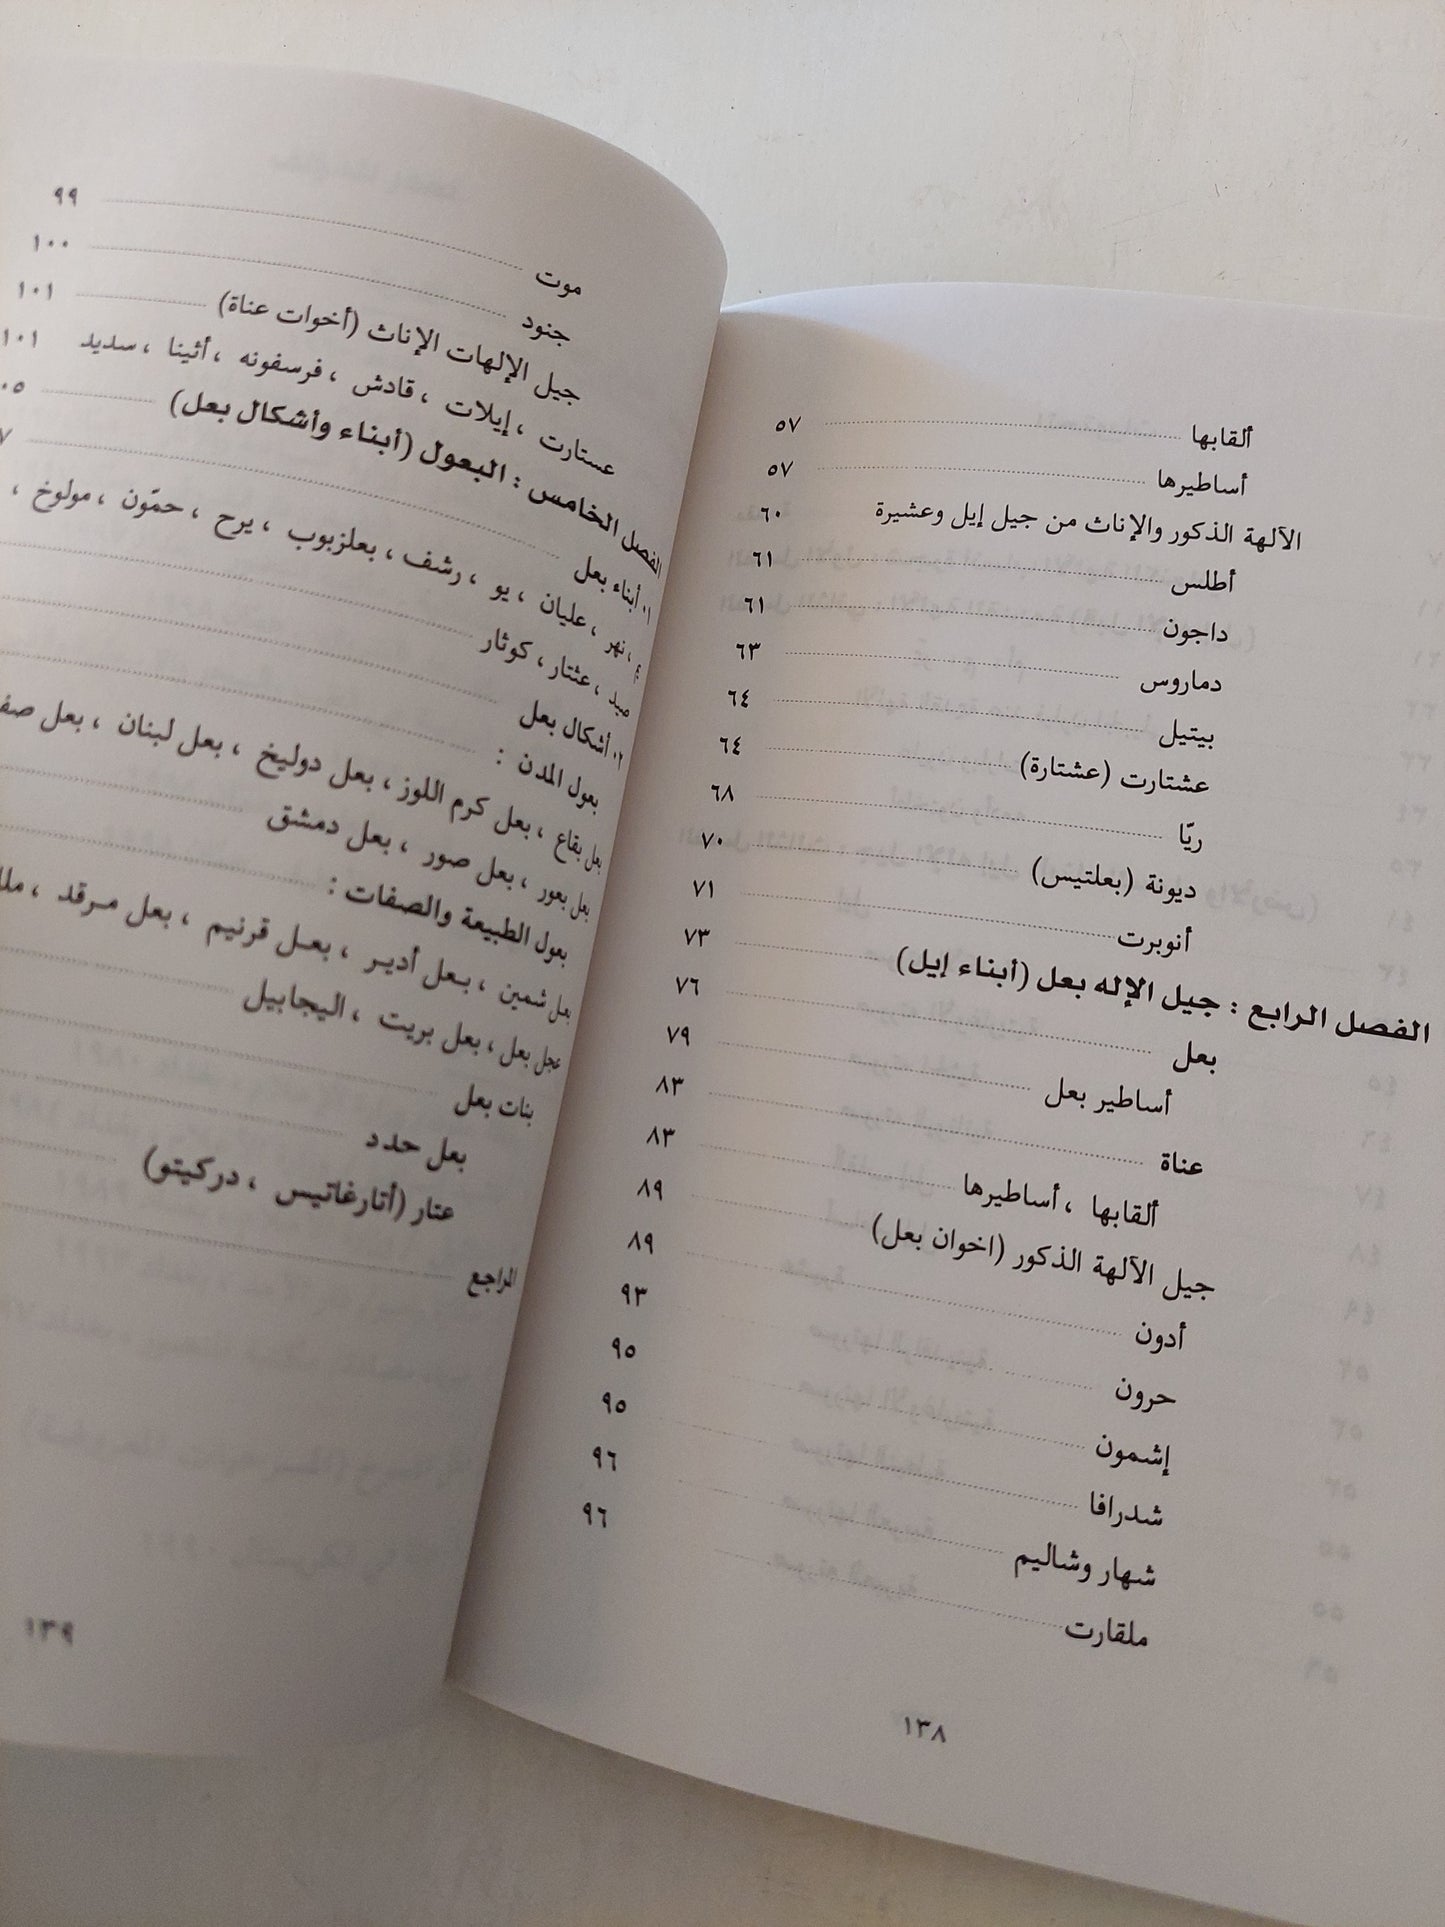 ألقابها ٥٧
أساطيرها ٥٧
الآلهة الذكور والإناث من جيل إيل وعشيرة ٦٠
أطلس ٦١
داجون ٦١
دماروس ٦٣
بيتيل ٦٤
عشتارت (عشتارة) ٦٤
ريّا ٦٨
ديونة (بعلتيس) ٧٠
أنوبرت ٧١
الفصل الرابع : جيل الإله بعل (أبناء إيل) ٧٣
بعل ٧٦
أساطير بعل ٧٩
عناة ٨٣
ألقابها ، أساطيرها ٨٣
جيل الآلهة الذكور (اخوان بعل) ٨٩
أدون ٨٩
حرون ٩٣
إشمون ٩٥
شدرافا ٩٥
شهار وشاليم ٩٦
ملقارت ٩٦
١٣٨
موت ٩٩
جنود ١٠٠
جيل الإلهات الإناث (أخوات عناة) ١٠١
عستارت ، إيلات ، قادش ، فرسفونه ، أثينا ، سديد ١٠١
الفصل الخامس : البعول (أبناء وأشكال بعل) ٠٥
١. أبناء بعل ٧
، نهر ، عليان ، يو ، رشف ، بعلزبوب ، يرح ، حمّون ، مولوخ ،
صيد ، عثتار ، كوثار
٢. أشكال بعل
بعول المدن :
بعل بقاع ، بعل كرم اللوز ، بعل دوليخ ، بعل لبنان ، بعل
بعل بعور ، بعل صور ، بعل دمشق
بعول الطبيعة والصفات :
بعل شمين ، بعل أدير ، بعل قرنيم ، بعل مرقد ،
عجل بعل ، بعل بريت ، اليجابيل
بنات بعل
بعل حدد
عتار (أتارغاتيس ، دركيتو)
المراجع
١٣٩